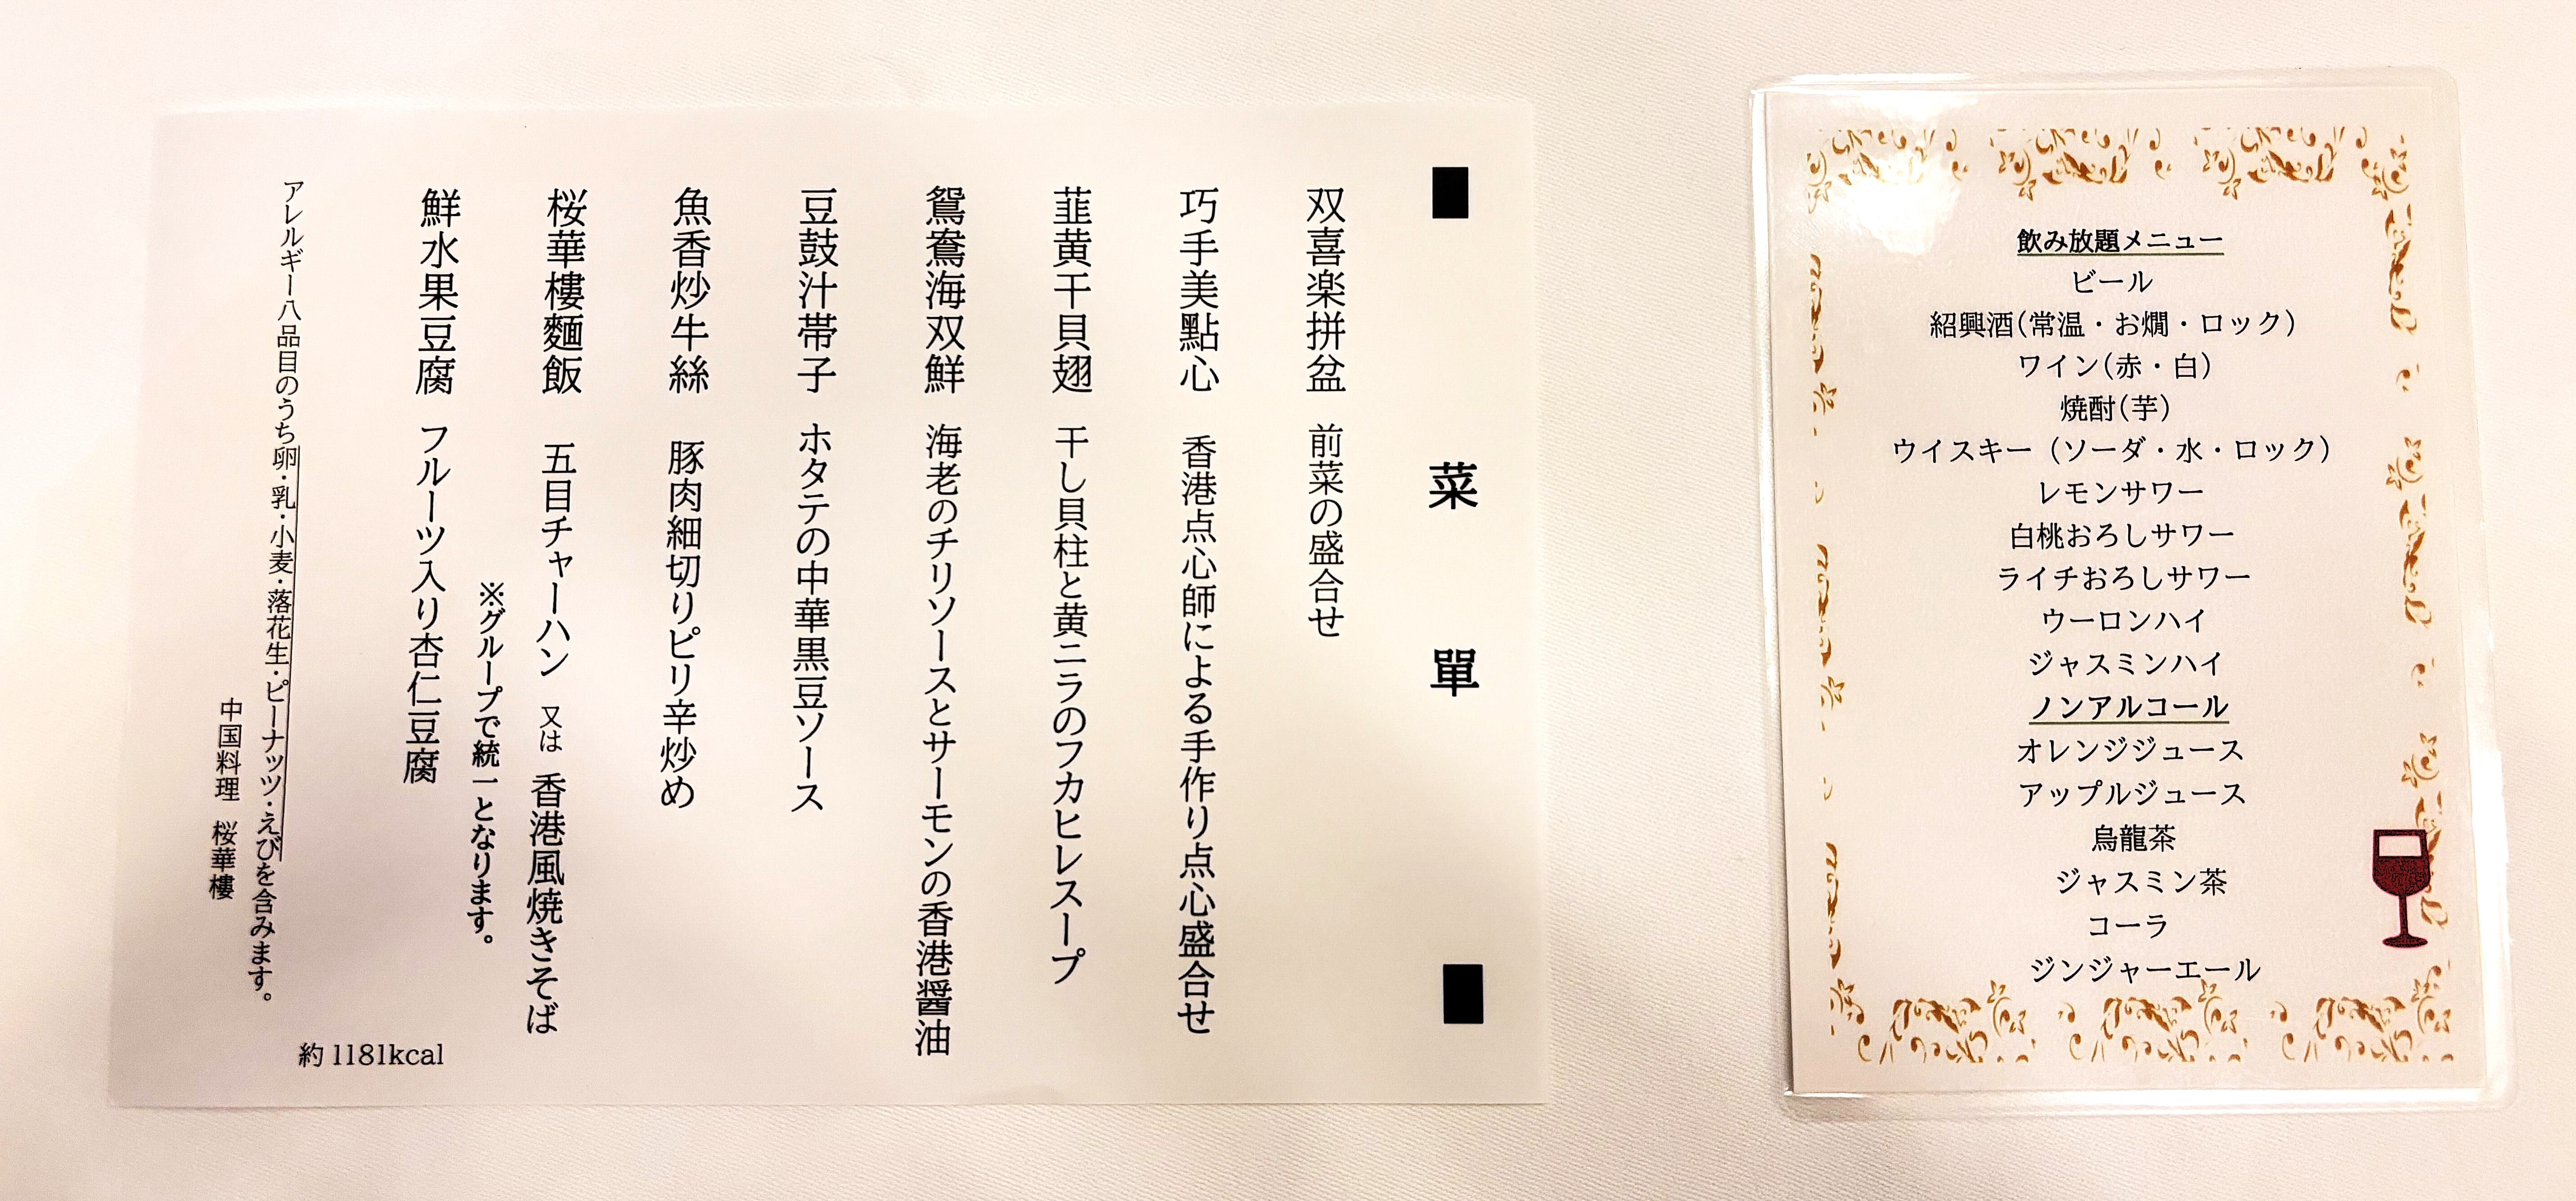 菜單
双喜楽拼盆 前菜の盛合せ
巧手美點心 香港点心師による手作り点心盛合せ
韮黄干貝翅 干し貝柱と黄ニラのフカヒレスープ
鴛鴦海双鮮 海老のチリソースとサーモンの香港醤油
豆鼓汁帯子 ホタテの中華黒豆ソース
魚香炒牛絲 豚肉細切りピリ辛炒め
桜華樓麵飯 五目チャーハン 又は 香港風焼きそば
※グループで統一となります。
鮮水果豆腐 フルーツ入り杏仁豆腐
アレルギー八品目のうち卵・乳・小麦・落花生・ピーナッツ・えびを含みます。
中国料理 桜華樓
約1181kcal
飲み放題メニュー
ビール
紹興酒(常温・お燗・ロック)
ワイン(赤・白)
焼酎(芋)
ウイスキー（ソーダ・水・ロック）
レモンサワー
白桃おろしサワー
ライチおろしサワー
ウーロンハイ
ジャスミンハイ
ノンアルコール
オレンジジュース
アップルジュース
烏龍茶
ジャスミン茶
コーラ
ジンジャーエール